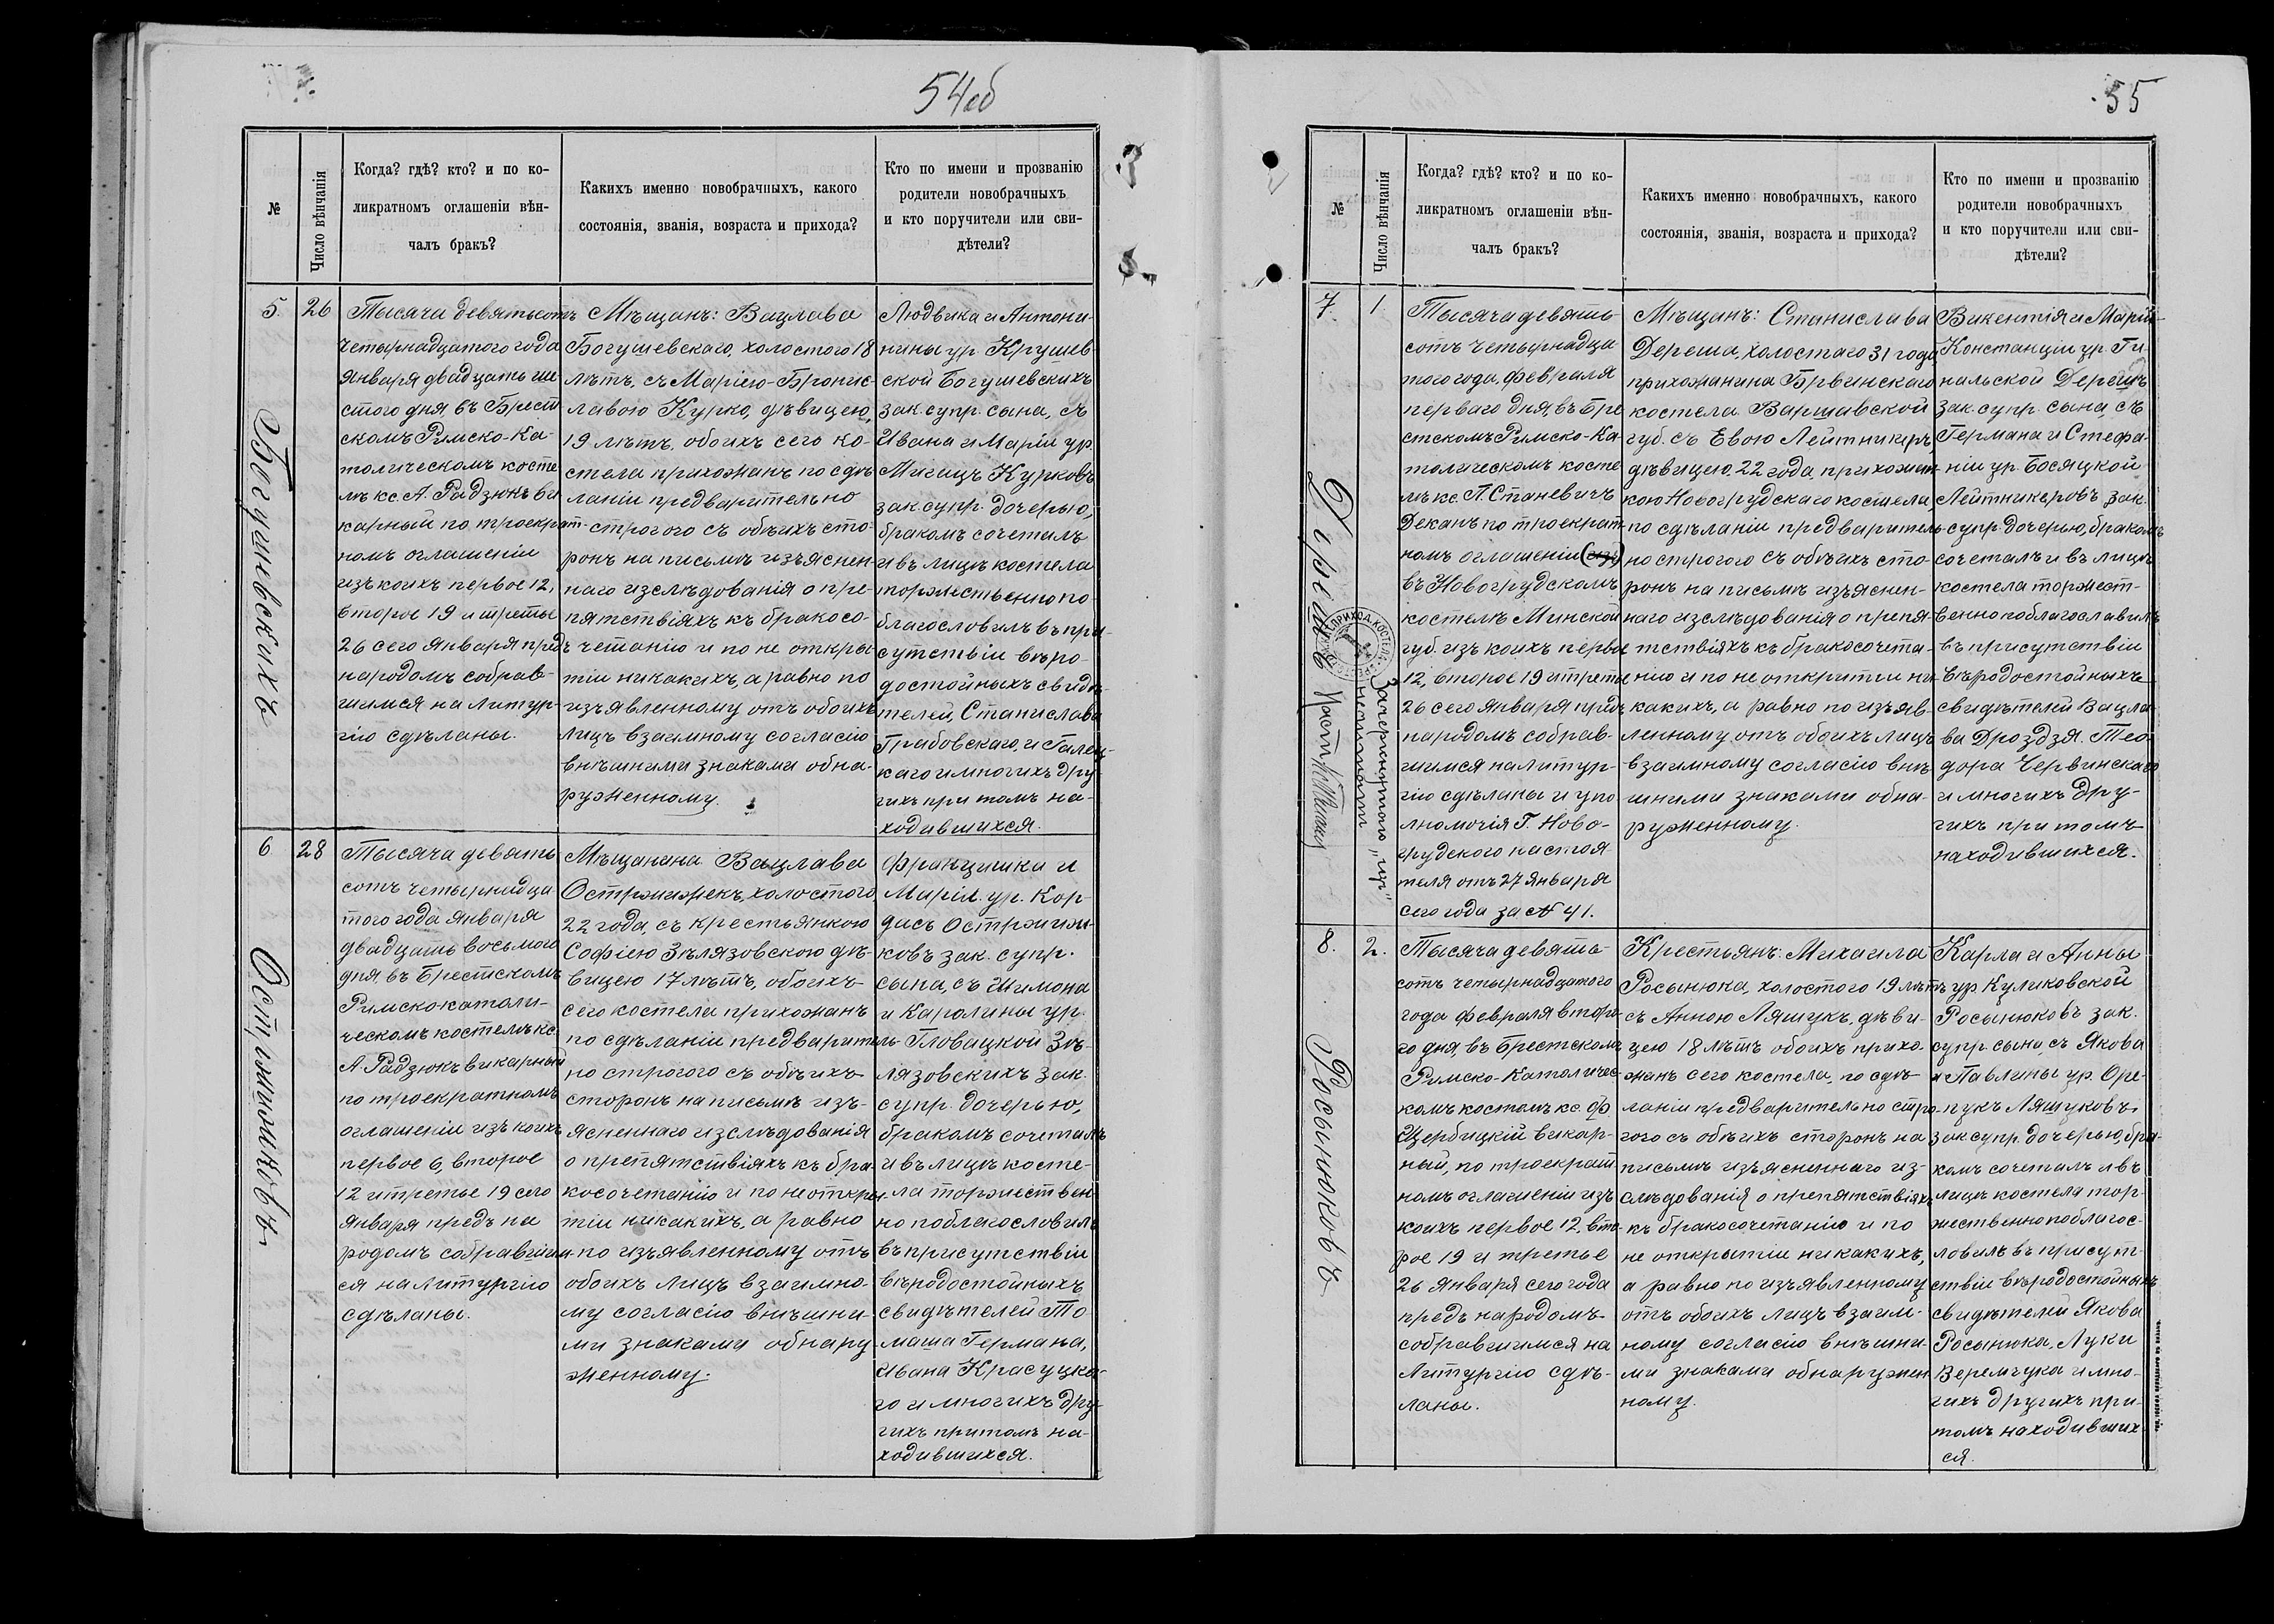 54об
№
Число вѣнчанія
Когда? гдѣ? кто? и по ко-
ликратномъ оглашеніи вѣн-
чалъ бракъ?
Какихъ именно новобрачныхъ, какого
состоянія, званія, возраста и прихода?
Кто по имени и прозванію
родители новобрачныхъ
и кто поручители или сви-
дѣтели?
5.
26
Богушевскихъ
Тысяча девятьсотъ
четырнадцатого года
Января двадцать ше
стого дня, въ Брест
скомъ Римско-Ка-
толическомъ косте
лѣ кс. А. Радзюкъ ви
карный по троекрат-
номъ оглашеніи
изъ коихъ первое 12,
второе 19 и третье
26 сего Января предъ
народомъ собрав-
шимся на литур-
гію сдѣланы.
Мѣщанъ: Вацлава
Богушевскаго, холостого 18
лѣтъ, съ Маріею-Бронис-
лавою Курко, дѣвицею,
19 лѣтъ, обоихъ сего ко-
стела прихожанъ по сдѣ
ланіи предварительно
строгого съ обѣихъ сто-
ронъ на письмѣ изъяснен-
наго изслѣдованія о пре-
пятствіяхъ къ бракосо-
четанію и по не откры
тіи никакихъ, а равно по
изъявленному отъ обоихъ
лицъ взаимному согласію
внѣшними знаками обна-
руженному.
Людвика и Антони-
нины ур. Крушев-
ской Богушевскихъ
зак. супр. сына, съ
Ивана и Маріи ур.
Мигицъ Курковъ
зак. супр. дочерью,
бракомъ сочеталъ
и въ лицѣ костела
торжественно по-
благословилъ въ при-
сутствіи вѣро-
достойныхъ свидѣ-
телей, Станислава
Грабовскаго, и Галец-
каго и многихъ дру-
гихъ при томъ на-
ходившихся.
6
28
Остржижковъ
Тысяча девять
сотъ четырнадца
того года Января
двадцать восьмого
дня, въ Брестскомъ
Римско-католи-
ческомъ костелѣ кс.
А. Радзюкъ викарный
по троекратномъ
оглашеніи изъ коихъ
первое 6, второе
12 и третье 19 сего
Января предъ на
родомъ собравшим-
ся на Литургію
сдѣланы.
Мѣщанина Вацлава
Остржижекъ, холостого,
22 года, съ крестьянкою
Софіею Зѣлязовскою дѣ-
вицею 17 лѣтъ, обоихъ
сего костела прихожанъ
по сдѣланіи предваритель-
но строгого съ обѣихъ
сторонъ на письмѣ изъ-
ясненнаго изслѣдованія
о препятствіяхъ къ бра-
косочетанію и по не откры-
тіи никакихъ, а равно
по изъявленному отъ
обоихъ лицъ взаимно-
му согласію внѣшни-
ми знаками обнару
женному.
Францишка и
Маріи ур. Кор-
дасъ Остржиж-
ковъ зак. супр.
сына, съ Шимона
и Каролины ур.
Гловацкой Зѣ-
лязовскихъ зак.
супр. дочерью,
бракомъ сочеталъ
и въ лицѣ косте-
ла торжествен-
но поблагословилъ
въ присутствіи
вѣродостойныхъ
свидѣтелей То-
маша Германа,
Ивана Красуцка-
го и многихъ дру-
гихъ притомъ на-
ходившихся.
55
№
Число вѣнчанія
Когда? гдѣ? кто? и по ко-
ликратномъ оглашеніи вѣн-
чалъ бракъ?
Какихъ именно новобрачныхъ, какого
состоянія, званія, возраста и прихода?
Кто по имени и прозванію
родители новобрачныхъ
и кто поручители или сви-
дѣтели?
7.
1
Дерешъ
Зачеркнутого „изъ“
не читать
Тысяча девять-
сотъ четырнадца
того года, февраля
первого дня, въ Бре
стскомъ Римско-Ка-
толическомъ косте
лѣ кс. П. Станевичъ
Деканъ по троекрат-
номъ оглашеніи (изъ)
въ Новогрудскомъ
костелѣ Минской
губ. изъ коихъ первое
12, второе 19 и третье
26 сего Января предъ
народомъ собрав-
шимся на литур-
гію сдѣланы и упо
лномочія Г. Ново-
грудского настоя
теля отъ 27 Января
сего года за № 41.
Мѣщанъ: Станислава
Дереша, холостаго 31 года
прихожанина Брвинскаго
костела Варшавской
губ. съ Евою Лейтникеръ,
дѣвицею, 22 года, прихожан-
кою Новогрудскаго костела
по сдѣланіи предваритель-
но строгого съ обѣихъ сто-
ронъ на письмѣ изъяснен-
наго изслѣдованія о препя-
тствіяхъ къ бракосочета-
нію и по не открытіи ни-
какихъ, а равно по изъяв-
ленному отъ обоихъ лицъ
взаимному согласію внѣ
шними знаками обна-
руженному.
Викентія и Маріи-
Констанціи ур. Ги-
нальской Дерешъ
зак. супр. сына, съ
Германа и Стефа-
ніи ур. Босяцкой
Лейтникеровъ зак.
супр. дочерью, бракомъ
сочеталъ и въ лицѣ
костела торжест-
венно поблагославилъ
въ присутствіи
вѣродостойныхъ
свидѣтелей Вацла-
ва Дроздзя. Тео-
дора Червинскаго
и многихъ дру-
гихъ при томъ
находившихся.
8.
2.
Росынюковъ
Тысяча девять-
сотъ четырнадцатого
года февраля второ-
го дня, въ Брестскомъ
Римско-Католичес-
комъ костелѣ кс. Ф.
Щербицкій викар-
ный, по троекрат
номъ оглашеніи изъ
коихъ первое 12, вто-
рое 19 и третье
26 Января сего года
предъ народомъ
собравшимся на
Литургію сдѣ-
ланы.
Крестьянъ: Михаила
Росынюка, холостого 19 лѣтъ
съ Анною Ляшукъ, дѣви-
цею 18 лѣтъ обоихъ прихо-
жанъ сего костела, по сдѣ-
ланіи предварительно стро-
гого съ обѣихъ сторонъ на
письмѣ изъясненнаго из-
слѣдованія о препятствіяхъ
къ бракосочетанію и по
не открытіи никакихъ,
а равно по изъявленному
отъ обоихъ лицъ взаим-
ному согласію внѣшни-
ми знаками обнаружен
ному.
Карла и Анны
ур. Куликовской
Росынюковъ зак.
супр. сына, съ Якова
и Павлины ур. Оре-
пукъ Ляшуковъ
зак. супр. дочерью, бра-
комъ сочеталъ и въ
лицѣ костела тор-
жественно поблагос-
ловилъ въ присут-
ствіи вѣродостойныхъ
свидѣтелей Якова
Росынюка, Луки
Веремчука и мно-
гихъ другихъ при-
томъ находивших-
ся.